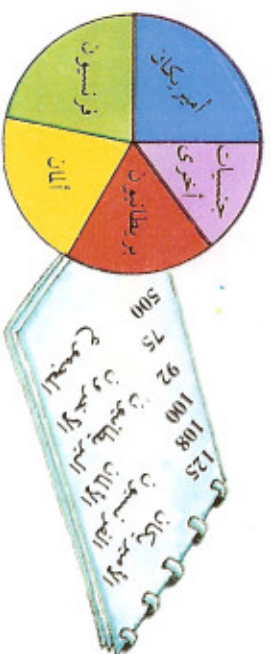 أميريكان
جنسيات أخرى
بريطانيون
ألمان
فرنسيون
الأميريكان 125
الفرنسيون 108
الألمان 100
البريطانيون 92
الآخرون 75
المجموع 500